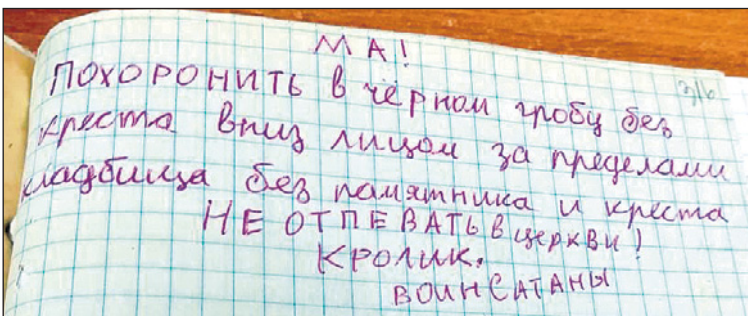 МА!
316
ПОХОРОНИТЬ в чёрном гробу без
креста вниз лицом за пределами
кладбища без памятника и креста
НЕ ОТПЕВАТЬ в церкви!
КРОЛИК.
ВОИН САТАНЫ